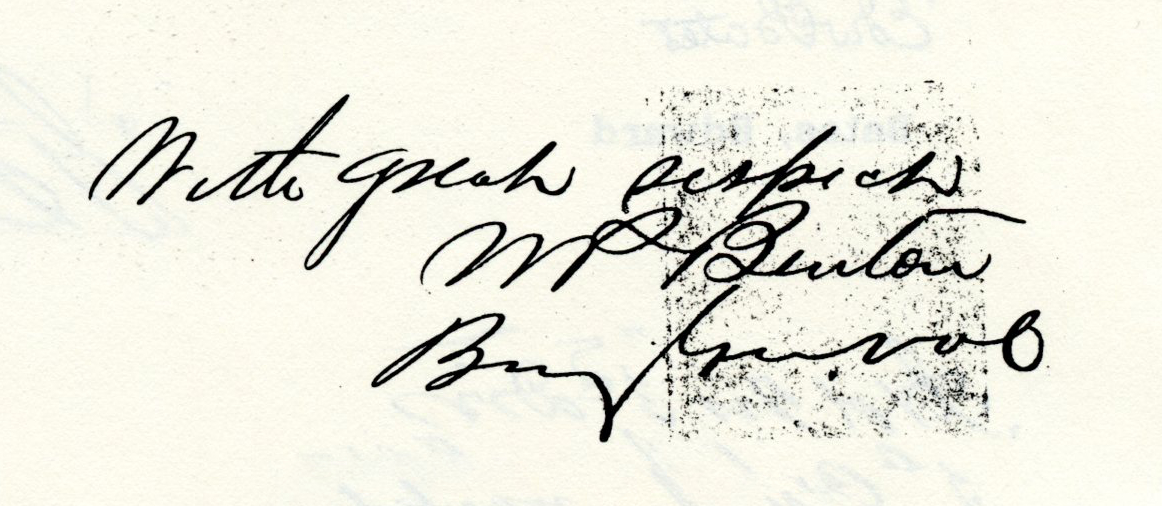 With great respect
W P Benton
Brig Genl vols